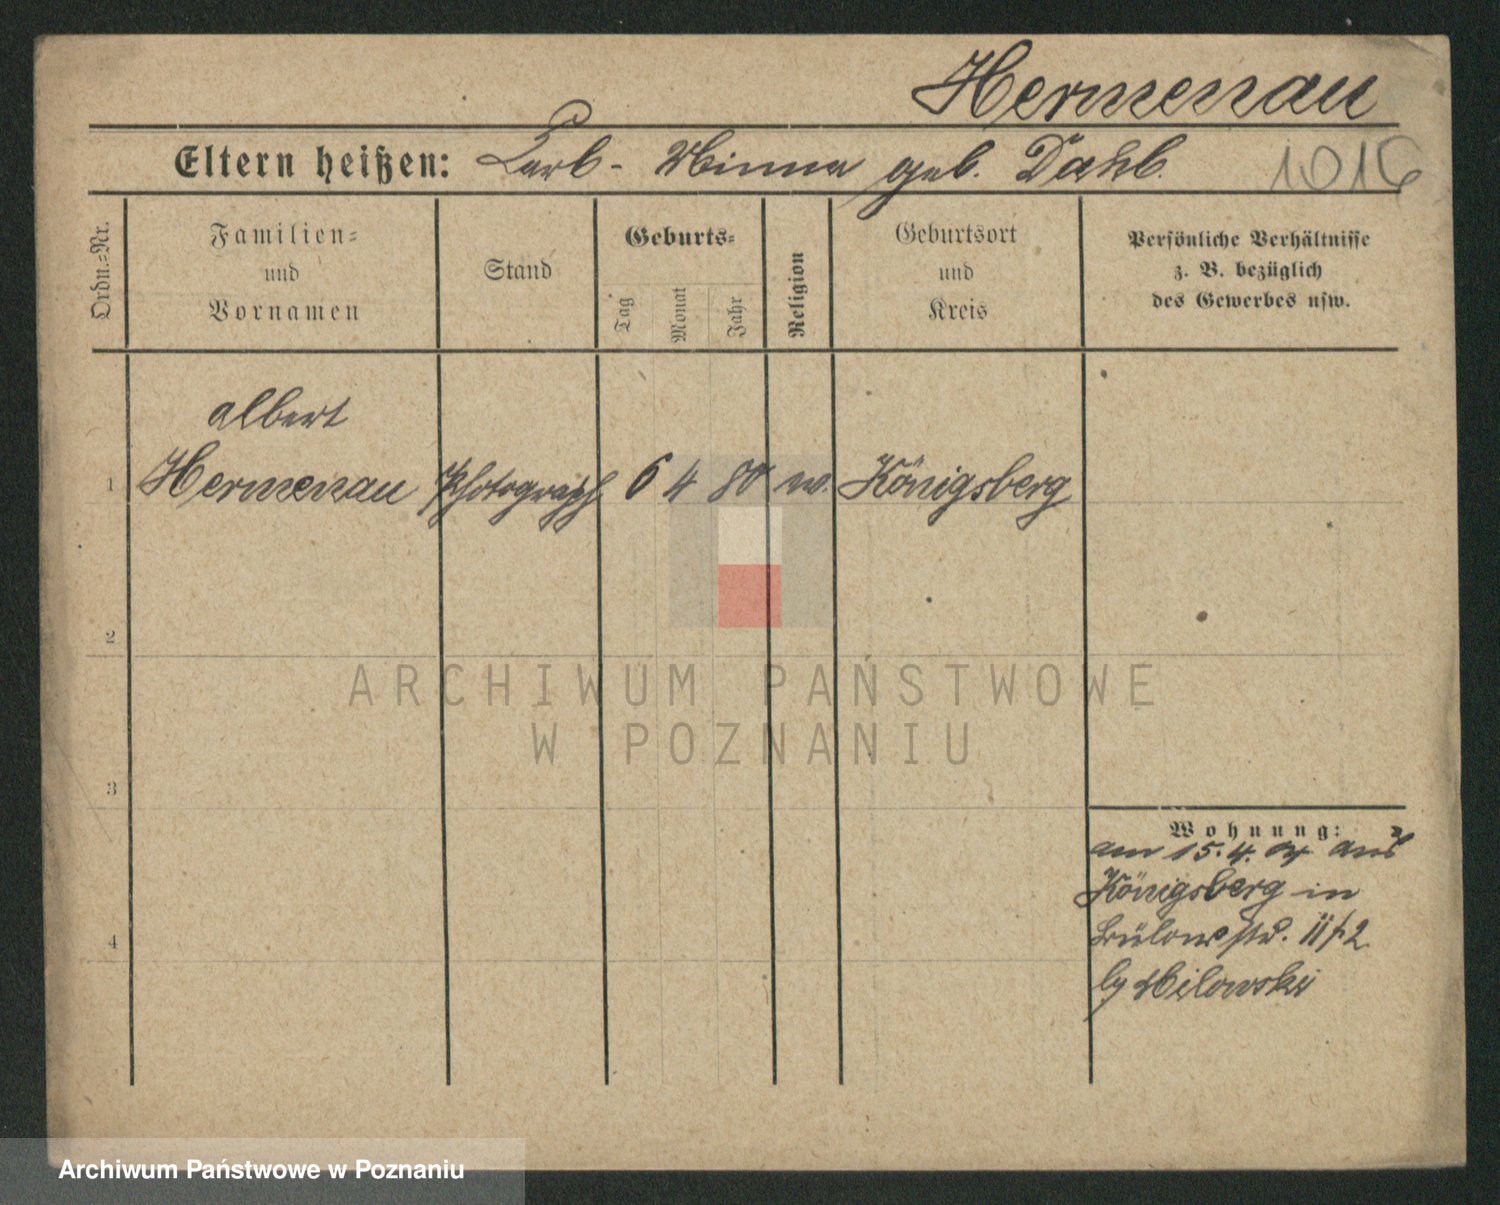 Hermenau
Eltern heißen: Karl - Minna geb. Dahl.
1016
Ordn.-Nr.
Familien-
und
Vornamen
Stand
Geburts-
Tag
Monat
Jahr
Religion
Geburtsort
und
Kreis
Persönliche Verhältnisse
z. B. bezüglich
des Gewerbes usw.
albert
1 Hermenau Photograph 6 4 80 ev. Königsberg
2
3
4
ARCHIWUM PAŃSTWOWE
W POZNANIU
Wohnung:
am 15. 4. 04 aus
Königsberg in
Bülowstr. II
by Milowski
Archiwum Państwowe w Poznaniu